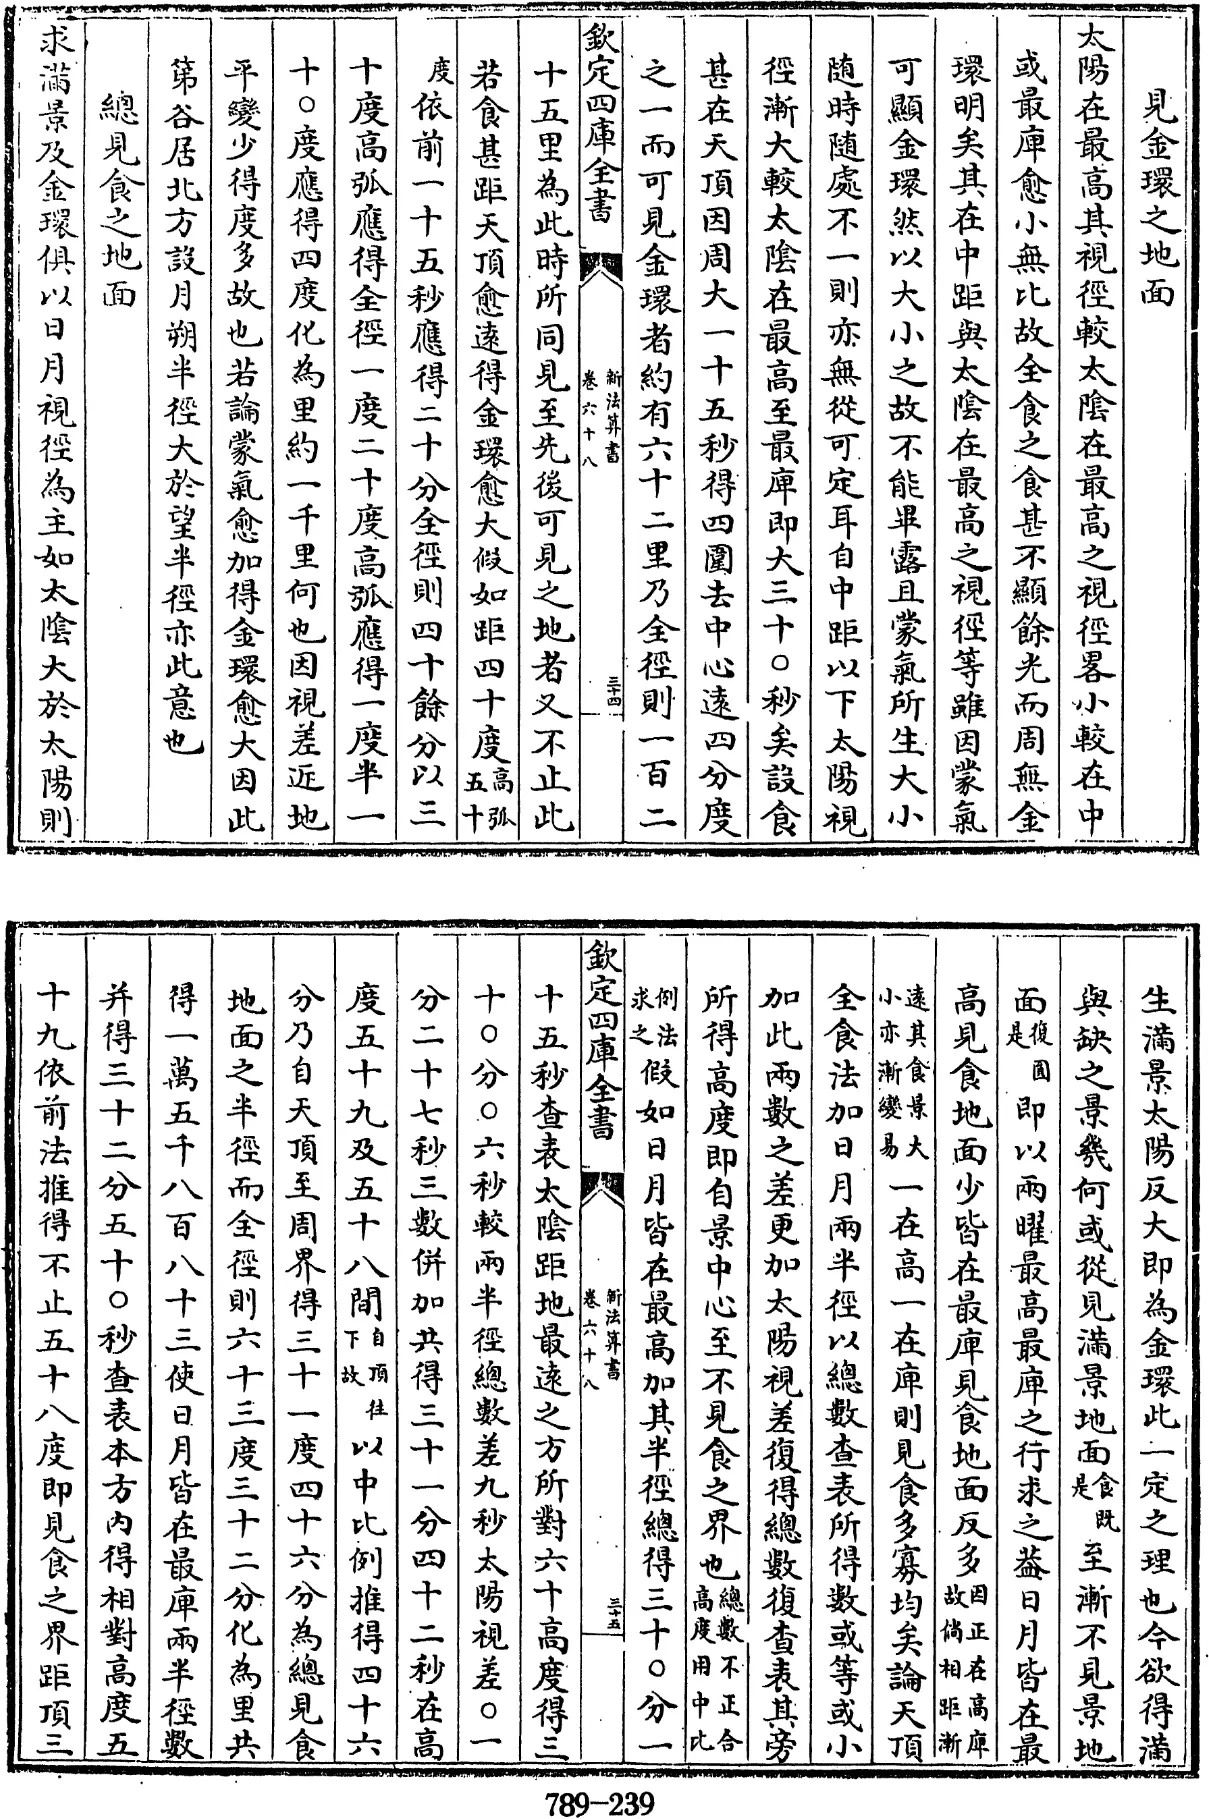 見金環之地面
太陽在最高其視徑較太陰在最高之視徑畧小較在中
或最庳愈小無比故全食之食甚不顯餘光而周無金
環明矣其在中距與太陰在最高之視徑等雖因蒙氣
可顯金環然以大小之故不能畢露且蒙氣所生大小
随時随處不一則亦無從可定耳自中距以下太陽視
徑漸大較太陰在最高至最庳即大三十〇秒矣設食
甚在天頂因周大一十五秒得四圍去中心遠四分度
之一而可見金環者約有六十二里乃全徑則一百二
欽定四庫全書
新法算書
卷六十八
三十四
十五里為此時所同見至先後可見之地者又不止此
若食甚距天頂愈遠得金環愈大假如距四十度高弧五十
度依前一十五秒應得二十分全徑則四十餘分以三
十度高弧應得全徑一度二十度高弧應得一度半一
十〇度應得四度化為里約一千里何也因視差近地
平變少得度多故也若論蒙氣愈加得金環愈大因此
第谷居北方設月朔半徑大於望半徑亦此意也
總見食之地面
求滿景及金環俱以日月視徑為主如太陰大於太陽則
生滿景太陽反大即為金環此一定之理也今欲得滿
與缺之景幾何或從見滿景地面食既是至漸不見景地
面復圓是即以兩曜最高最庳之行求之葢日月皆在最
高見食地面少皆在最庳見食地面反多因正在高庳故倘相距漸
遠其食景大小亦漸變易一在高一在庳則見食多寡均矣論天頂
全食法加日月兩半徑以總數查表所得數或等或小
加此兩數之差更加太陽視差復得總數復查表其旁
所得高度即自景中心至不見食之界也總數不正合高度用中比
例法求之假如日月皆在最高加其半徑總得三十〇分一
欽定四庫全書
新法算書
卷六十八
三十五
十五秒查表太陰距地最遠之方所對六十高度得三
十〇分〇六秒較兩半徑總數差九秒太陽視差〇一
分二十七秒三數併加共得三十一分四十二秒在高
度五十九及五十八間自頂往下故以中比例推得四十六
分乃自天頂至周界得三十一度四十六分為總見食
地面之半徑而全徑則六十三度三十二分化為里共
得一萬五千八百八十三使日月皆在最庳兩半徑數
并得三十二分五十〇秒查表本方內得相對高度五
十九依前法推得不止五十八度即見食之界距頂三
789-239